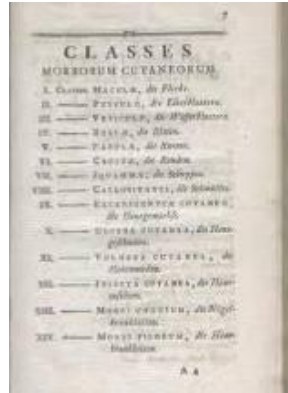 7
CLASSES
MORBORUM CUTANEORUM.
I. Classis. MACULÆ, die Flecke.
II. ——— PUSTULÆ, die Eiterblattern.
III. ——— VESICULÆ, die Wasserblattern.
IV. ——— BULLÆ, die Blasen.
V. ——— PAPULÆ, die
VI. ——— CRUSTÆ, die Rinden.
VII. ——— SQUAMMÆ, die Schuppen.
VIII. ——— CALLOSITATES, die
IX. ——— EXCRESCENTIÆ CUTANEÆ,
die Hautgewächse.
X. ——— ULCERA CUTANEA, die Haut-
geschwüre.
XI. ——— VULNERA CUTANEA, die
Hautwunden.
XII. ——— INSECTA CUTANEA, die Haut-
XIII. ——— MORBI UNGUIUM, die Nägel-
krankheiten.
XIV. ——— MORBI PILORUM, die Haar-
krankheiten.
A 4